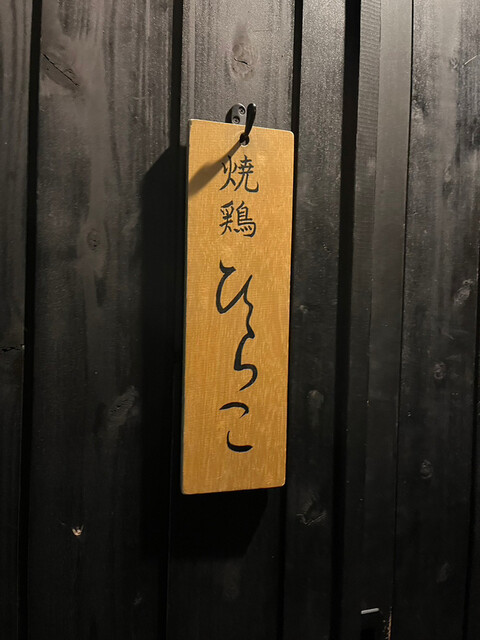 焼鶏ひらこ